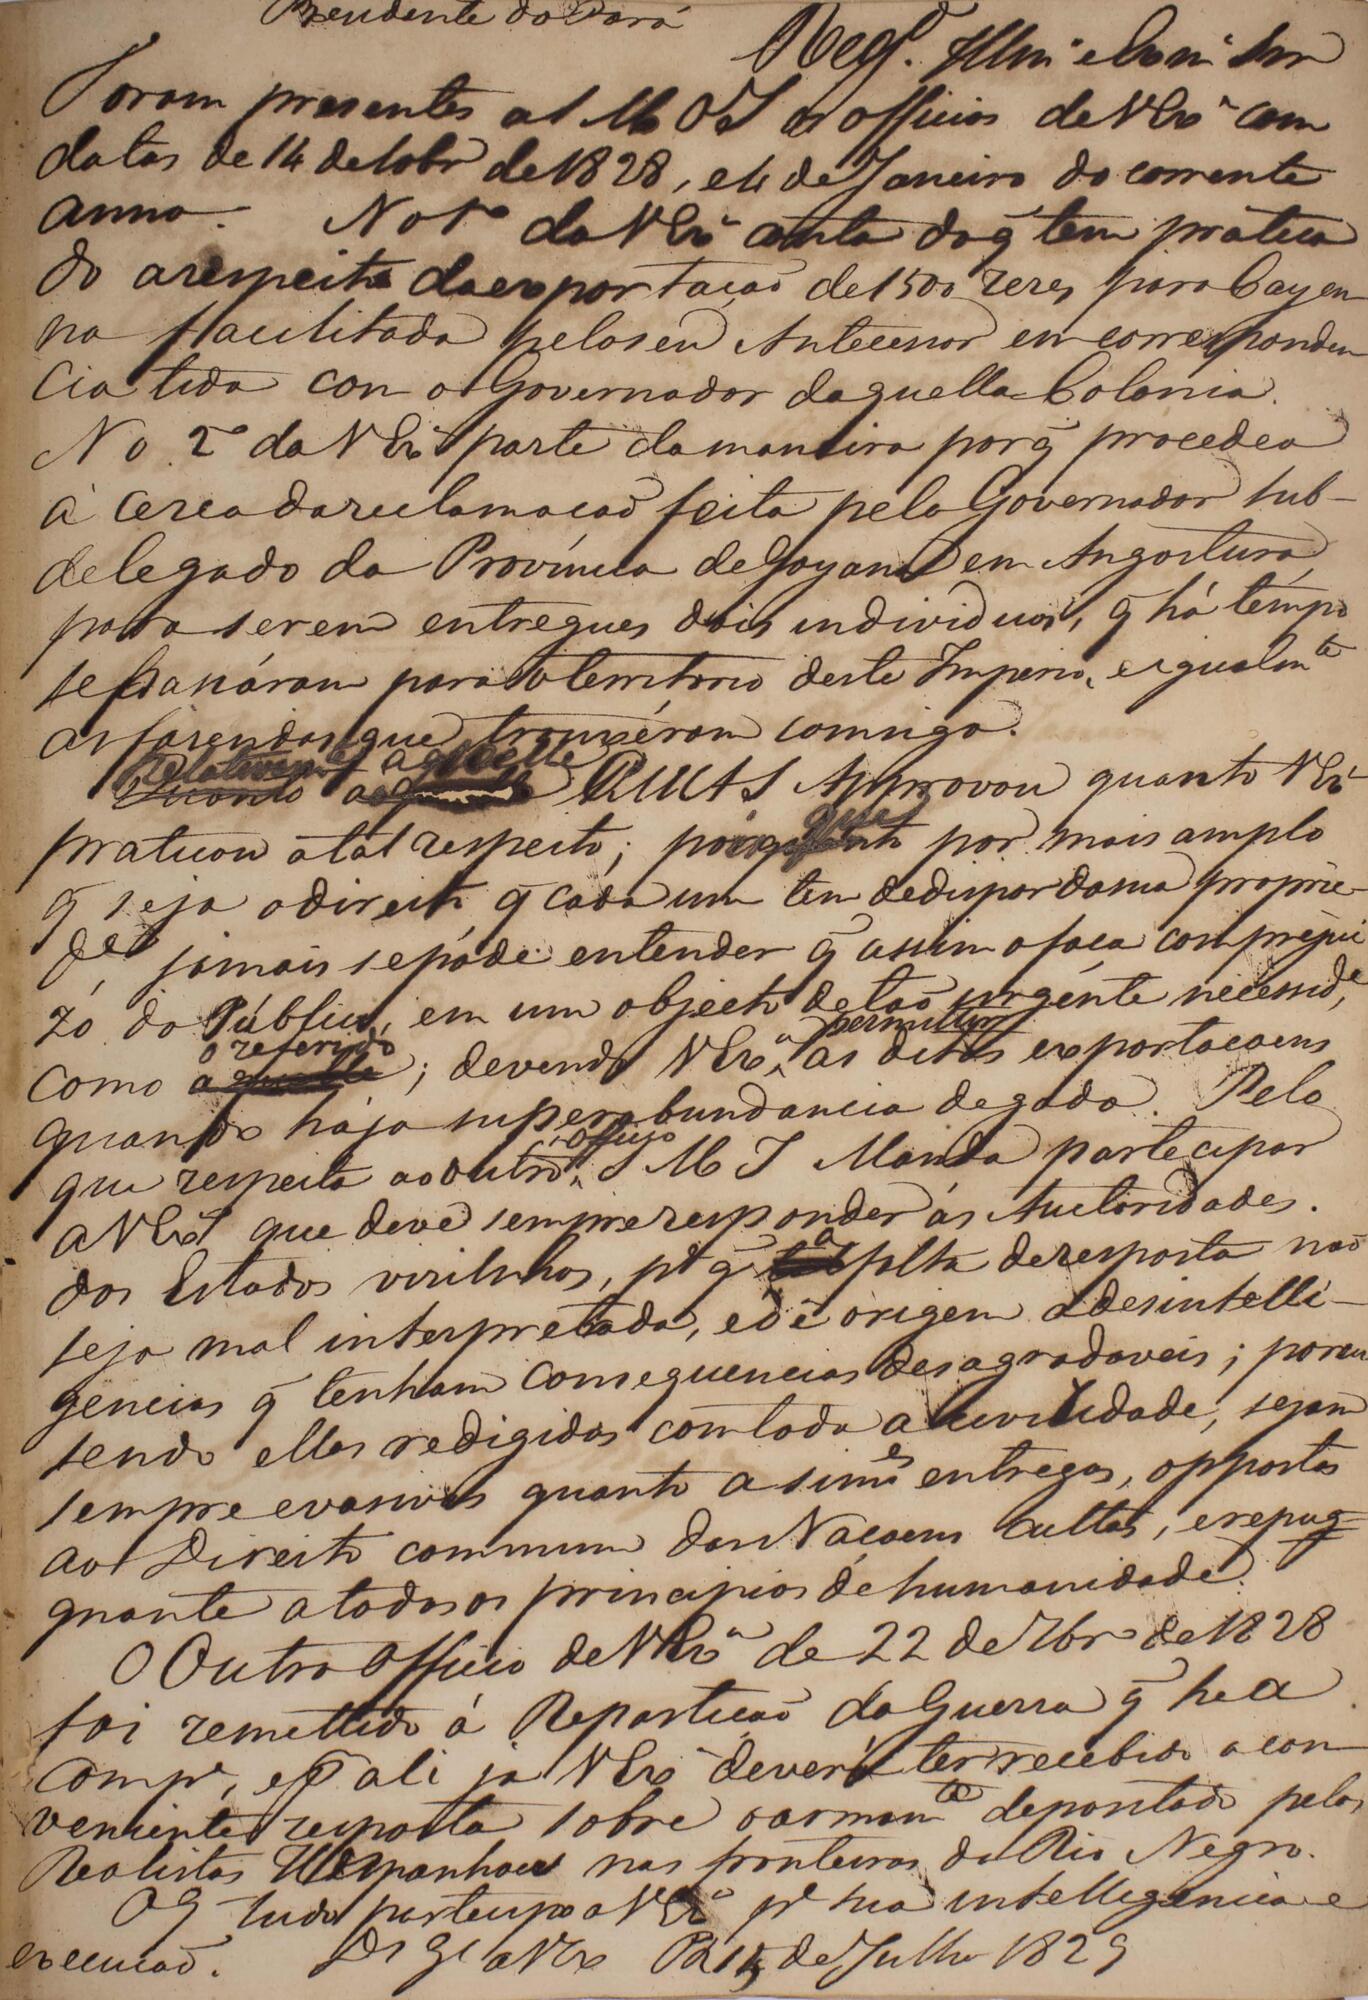 Presidente do Pará
Reg.do Illmo e Exmo Snr
Foram presentes a S M O I os officios de V Exa com
datas de 14 de 10br de 1828, e 4 de Janeiro do corrente
anno. No 1o da V Exa conta do q̃ tem pratica
do a respeito da exportação de 1500 rezes para Cayen
na facilitada pelo seu Antecessor em corresponden
cia tida com o Governador daquella Colonia.
No 2o da V Exa parte da maneira porq̃ procedeo
á cerca da reclamação feita pelo Governador Sub-
delegado da Provincia de Goyana em Angostura,
para serem entregues dois individuos, q̃ há tempo
se passáram para o territorio deste Imperio, e igualmte
as fazendas que trouxéram comsigo.
Relativamte aquelle
Quanto S M I Approvou quanto V Exa
praticou a tal respeito; por que por mais amplo
q̃ seja o direito q̃ cada um tem de dispor da sua proprie-
de, jamais se póde entender q̃ assim o faça com prejui
zo do Público, em um objecto de tão urgente necesside,
como o referido; devendo V Exa permittir as ditas exportaçoens
quando haja superabundancia de gado. Pelo
que respeita ao outro officio, S M I Manda participar
a V Exa que deve sempre responder ás Autoridades.
dos Estados visinhos, pa q̃ a falta de resposta não
seja mal interpretada, e dê origem a desintelli-
gencias q̃ tenham consequencias desagradaveis; porem
sendo ellas redigidas com toda a civilidade, sejam
sempre evasivas quanto a simes entregas, oppostas
ao Direito commum das Naçoens cultas, e repug-
gnante a todos os principios de humanidade.
O Outro Officio de V Exa de 22 de 7br de 1828
foi remettido á Repartição da Guerra q̃ he a
compe, e p ali ja V Exa deverá ter recebido a con
veniente resposta sobre o armamto depositado pelos
Realistas Hespanhoes nas fronteiras do Rio Negro.
O q̃ tudo participo a V Exa pa sua intelligencia e
execução. Ds Ge a V Ex P 15 de Julho 1829